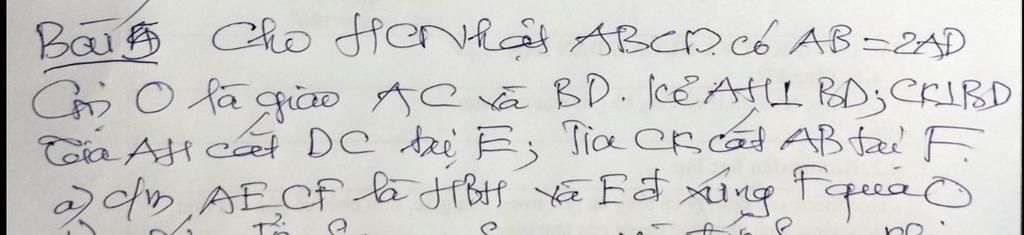 Bài 4 Cho HCNhật ABCD. có AB = 2AD
Gọi O là giao AC và BD. kẻ AH⊥ BD; CK⊥BD
Tia AH cắt DC tại E; Tia CK cắt AB tại F.
a) c/m AECF là HBH và E đ xứng F qua O